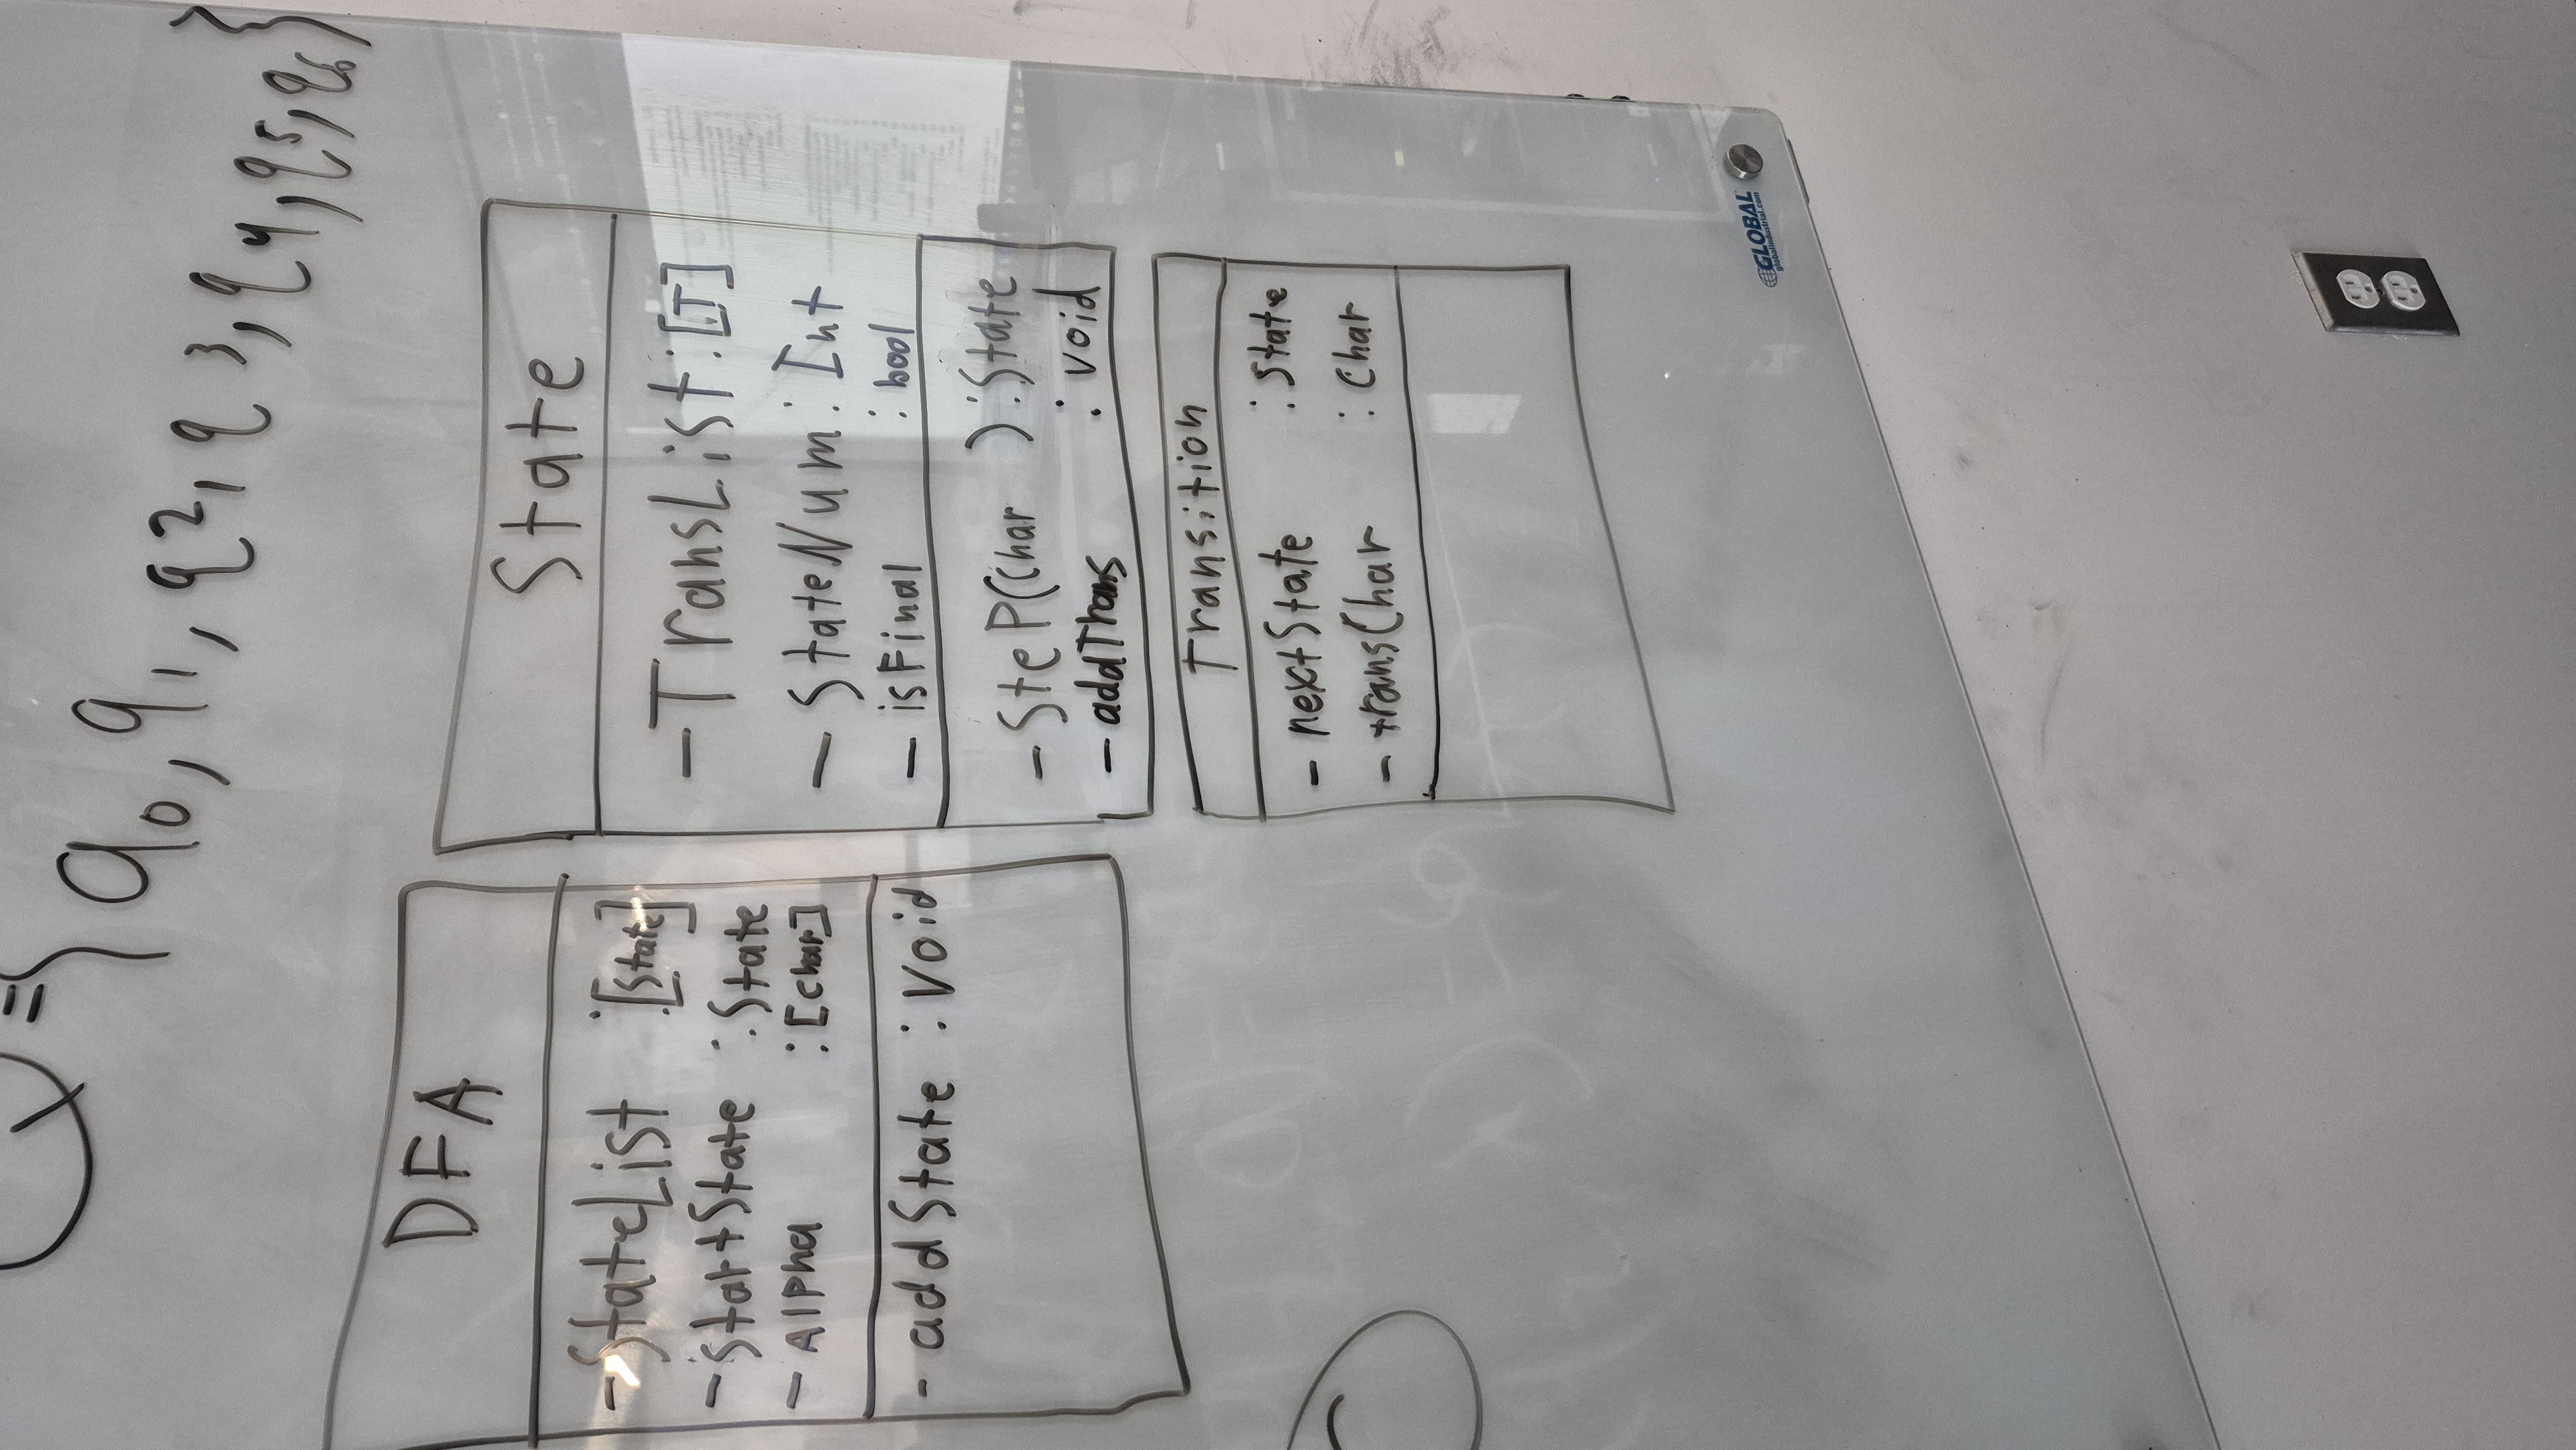 Q = { q0, q1, q2, q3, q4, q5, q6 }
DFA
- StateList : [State]
- StartState : State
- Alpha : [char]
- addState : Void
State
- TransList : [T]
- StateNum : Int
- isFinal : bool
- SteP(Char ) : State
- addTrans : void
Transition
- nextState : State
- transChar : Char
GLOBAL
globalindustrial.com